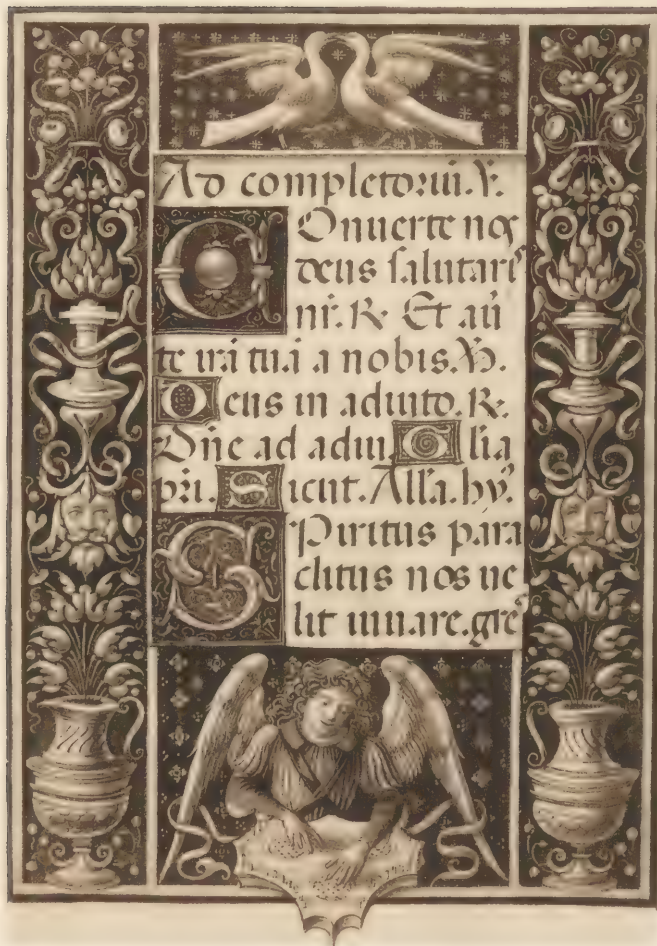 Ad completoriū. ℣.
Conuerte nos
deus salutarꝭ
nr̄. ℟. Et aū
te irā tuā a nobis. ℣.
Deus in adiuto. ℟.
Dn̄e ad adiu. Glia
pr̄i. Sicut. All'a. hy̾.
Spiritus para
clitus nos ue
lit iuuare. gre᷒